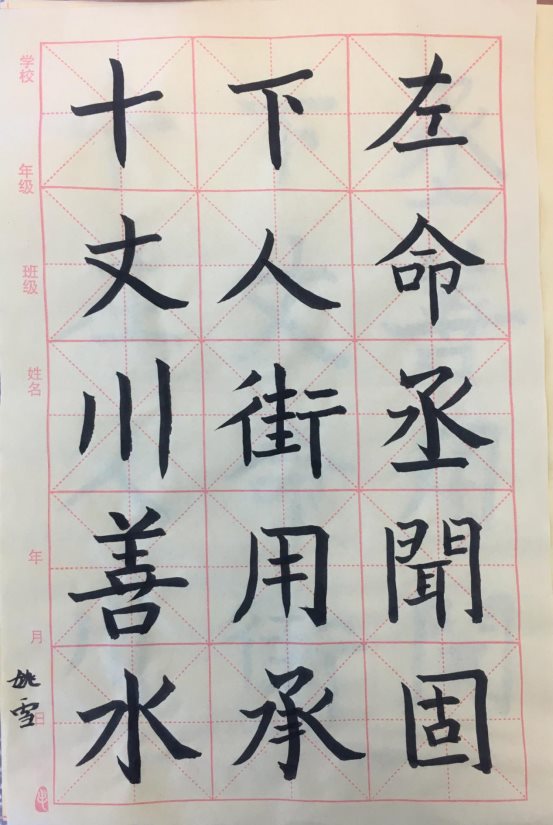 左命丞聞固
下人街用承
十丈川善水
姚雪
学校
年级
班级
姓名
年
月
日